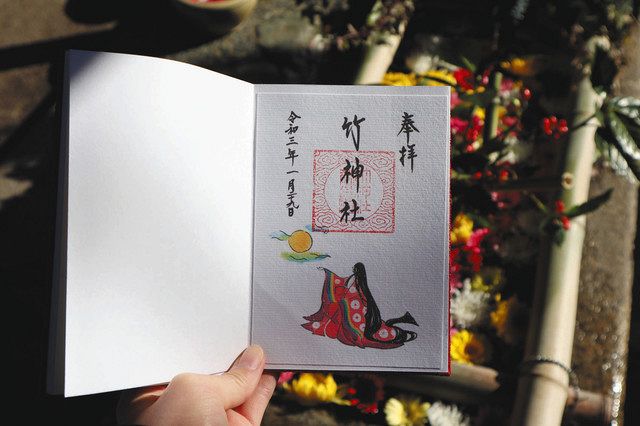 奉拝
竹神社
令和三年一月二十九日